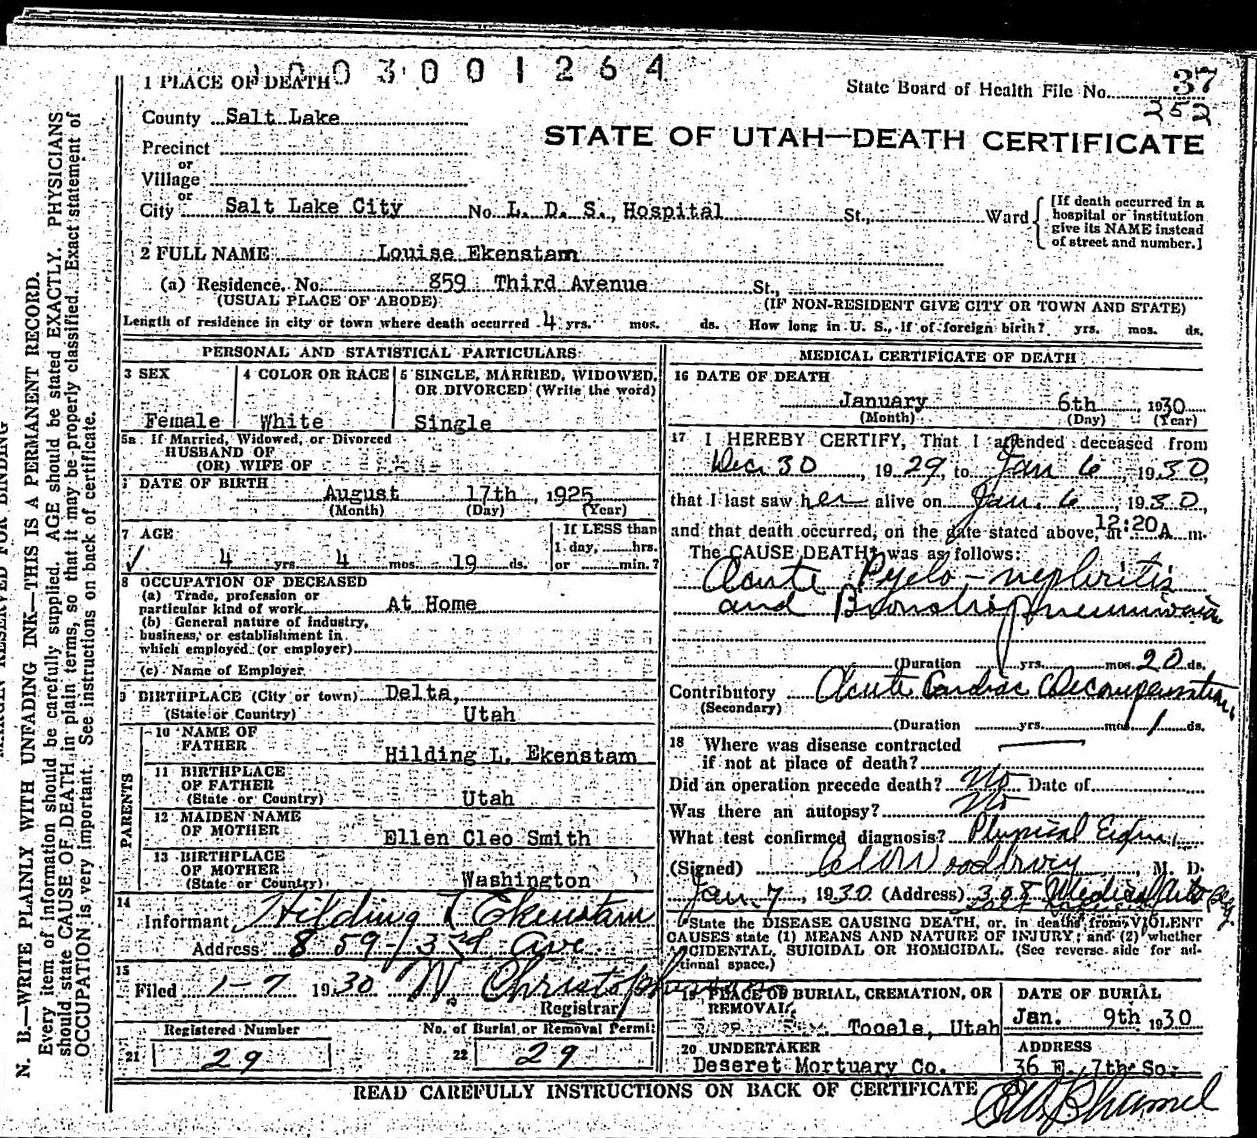 1003001264
1 PLACE OF DEATH
State Board of Health File No. 37
252
County Salt Lake
STATE OF UTAH—DEATH CERTIFICATE
Precinct
or
Village
or
City Salt Lake City No. L. D. S., Hospital St., Ward
[If death occurred in a
hospital or institution
give its NAME instead
of street and number.]
2 FULL NAME Louise Ekenstam
(a) Residence. No. 859 Third Avenue St.,
(USUAL PLACE OF ABODE) (IF NON-RESIDENT GIVE CITY OR TOWN AND STATE)
Length of residence in city or town where death occurred 4 yrs. mos. ds. How long in U. S., if of foreign birth? yrs. mos. ds.
PERSONAL AND STATISTICAL PARTICULARS
3 SEX
Female
4 COLOR OR RACE
White
5 SINGLE, MARRIED, WIDOWED,
OR DIVORCED (Write the word)
Single
5a If Married, Widowed, or Divorced
HUSBAND OF
(OR) WIFE OF
DATE OF BIRTH
August 17th, 1925
(Month) (Day) (Year)
7 AGE
4 yrs. 4 mos. 19 ds.
If LESS than
1 day, hrs.
or min.?
8 OCCUPATION OF DECEASED
(a) Trade, profession or
particular kind of work At Home
(b) General nature of industry,
business, or establishment in
which employed (or employer)
(c) Name of Employer
9 BIRTHPLACE (City or town) Delta,
(State or Country) Utah
PARENTS
10 NAME OF
FATHER Hilding L. Ekenstam
11 BIRTHPLACE
OF FATHER
(State or Country) Utah
12 MAIDEN NAME
OF MOTHER Ellen Cleo Smith
13 BIRTHPLACE
OF MOTHER
(State or Country) Washington
14
Informant Hilding L Ekenstam
Address 859-3rd Ave
15
Filed 1-7 1930
Registrar
Registered Number
21 29
No. of Burial or Removal Permit
22 29
MEDICAL CERTIFICATE OF DEATH
16 DATE OF DEATH
January 6th, 1930
(Month) (Day) (Year)
17 I HEREBY CERTIFY, That I attended deceased from
Dec 30, 1929, to Jan 6, 1930,
that I last saw her alive on Jan. 6, 1930,
and that death occurred, on the date stated above, at 12:20 A. m.
The CAUSE DEATH was as follows:
Acute Pyelo-nephritis
and
(Duration yrs. mos. 20 ds.
Contributory Acute Cardiac Decompensation
(Secondary)
(Duration yrs. mos. 1 ds.
18 Where was disease contracted
if not at place of death?
Did an operation precede death? No Date of
Was there an autopsy? No
What test confirmed diagnosis? Physical Exam
(Signed) Woodbury, M. D.
Jan. 7, 1930 (Address) 308 Medical Arts Bg
State the DISEASE CAUSING DEATH, or, in deaths from VIOLENT
CAUSES state (1) MEANS AND NATURE OF INJURY; and (2) whether
ACCIDENTAL, SUICIDAL OR HOMICIDAL. (See reverse side for ad-
ditional space.)
19 PLACE OF BURIAL, CREMATION, OR
REMOVAL
Tooele, Utah
DATE OF BURIAL
Jan. 9th 1930
20 UNDERTAKER
Deseret Mortuary Co.
ADDRESS
36 E. 7th So.
READ CAREFULLY INSTRUCTIONS ON BACK OF CERTIFICATE
MARGIN RESERVED FOR BINDING
N. B.—WRITE PLAINLY WITH UNFADING INK—THIS IS A PERMANENT RECORD.
Every item of information should be carefully supplied. AGE should be stated EXACTLY. PHYSICIANS
should state CAUSE OF DEATH in plain terms, so that it may be properly classified. Exact statement of
OCCUPATION is very important. See instructions on back of certificate.